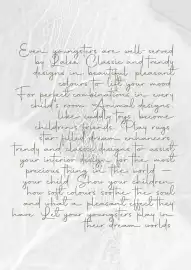 Even youngsters are well served
by Balta. Classic and trendy
designs in beautiful pleasant
colours to lift your mood.
For perfect combinations in every
child's room. Animal designs,
like cuddly toys, become
children's friends. Play rugs,
star filled dream enhancers,
trendy and classic designs to assist
your interior design for the most
precious thing in the world –
your child. Show your children
how soft colours soothe the soul
and what a pleasant effect they
have. Let your youngsters play in
their dream worlds.